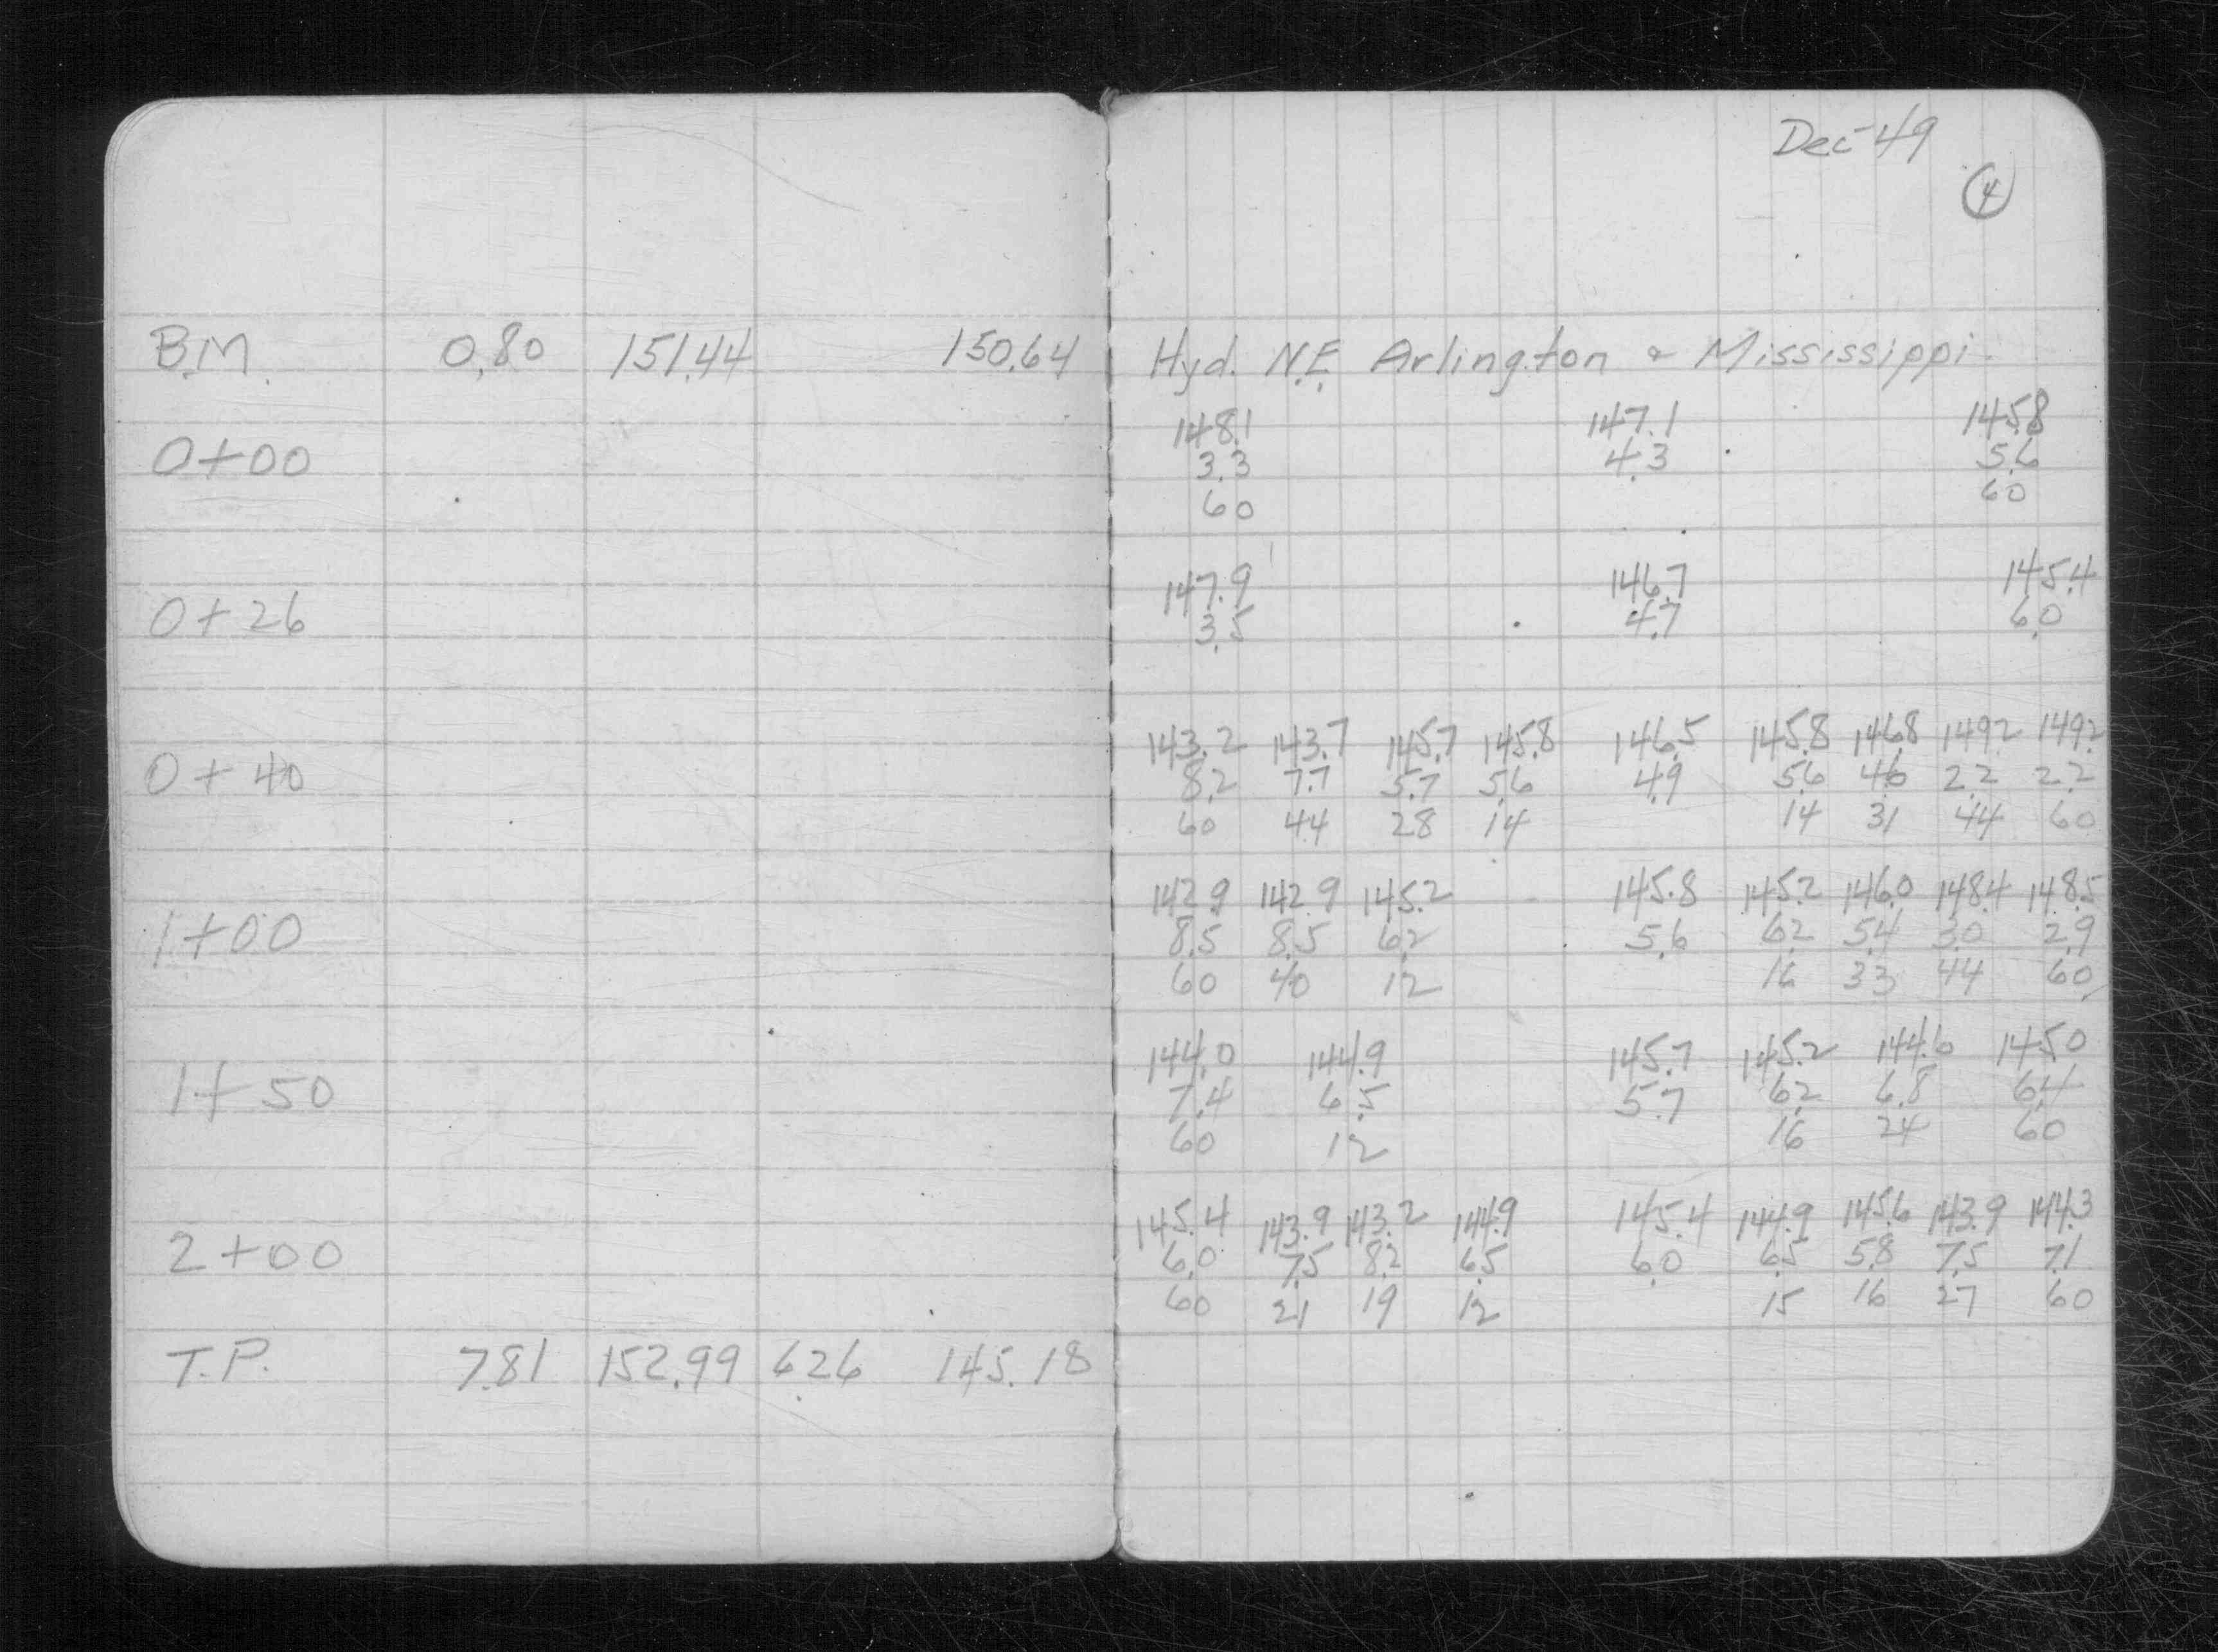 Dec-49
4
B.M. 0.80 151.44 150.64 Hyd. N.E. Arlington & Mississippi
148.1 147.1 145.8
0+00 3.3 4.3 5.6
60 60
147.9 146.7 145.4
0+26 3.5 4.7 6.0
143.2 143.7 145.7 145.8 146.5 145.8 146.8 149.2 149.2
0+40 8.2 7.7 5.7 5.6 4.9 5.6 4.6 2.2 2.2
60 44 28 14 14 31 44 60
142.9 142.9 145.2 145.8 145.2 146.0 148.4 148.5
1+00 8.5 8.5 6.2 5.6 6.2 5.4 3.0 2.9
60 40 12 16 33 44 60
144.0 144.9 145.7 145.2 144.6 145.0
1+50 7.4 6.5 5.7 6.2 6.8 6.4
60 12 16 24 60
145.4 143.9 143.2 144.9 145.4 144.9 145.6 143.9 144.3
2+00 6.0 7.5 8.2 6.5 6.0 6.5 5.8 7.5 7.1
60 21 19 12 15 16 27 60
T.P. 7.81 152.99 6.26 145.18